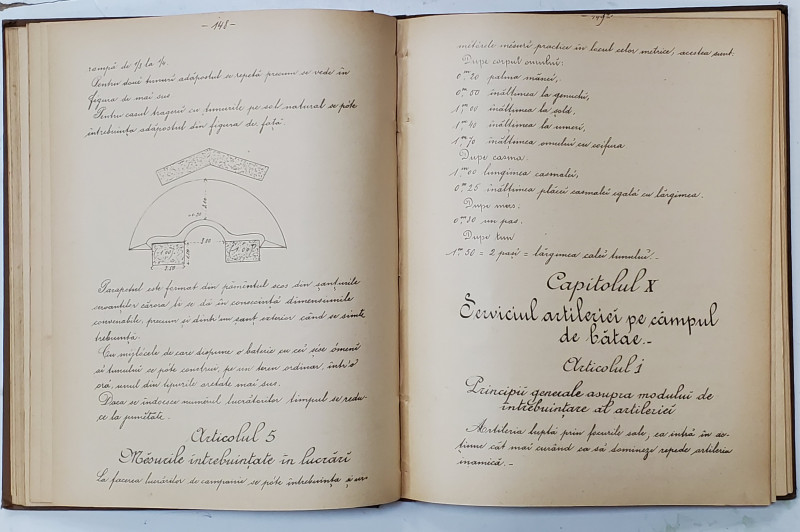 - 148 -
rampă de 4/1 la 6/1.
Pentru două tunuri adăpostul se repetă precum se vede în
figura de mai sus
Pentru casul tragerii cu tunurile pe sol natural se pôte
întrebuința adăpostul din figura de față
Parapetul este format din pământul scos din șanțurile
servanților cărora li se dă în consecință dimensiunile
convenabile, precum și dintr'un șanț exterior când se simte
trebuință.
Cu mijlócele de care dispune o baterie cu cei șése ómeni
ai tunului se pôte construi, pe un teren ordinar, într'o
oră, unul din tipurile arătate mai sus.
Daca se îndoesc numărul lucrătorilor timpul se redu-
ce la jumătate.
Articolul 5
Mĕsurile întrebuințate în lucrări
La facerea lucrărilor de campanie se pôte întrebuința și ur-
149
mătórele mĕsuri practice în locul celor metrice, acestea sunt:
Dupe corpul omului:
0m20 palma mânei,
0m50 înălțimea la genuchi,
1m00 înălțimea la șold,
1m40 înălțimea la umeri,
1m70 înălțimea omului cu coifura
Dupe casma:
1m00 lungimea casmalei,
0m25 înălțimea plăcei casmalei egală cu lărgimea.
Dupe mers:
0m80 un pas.
Dupe tun
1m50 = 2 pași = lărgimea căleĭ tunului. -
Capitolul X
Serviciul artileriei pe câmpul
de bătae. -
Articolul 1
Principii generale asupra modului de
întrebuințare al artileriei
Artileria luptă prin focurile sale, ea intră în ac-
țiune cât mai curând ca să domineze repede artileria
inamică. -